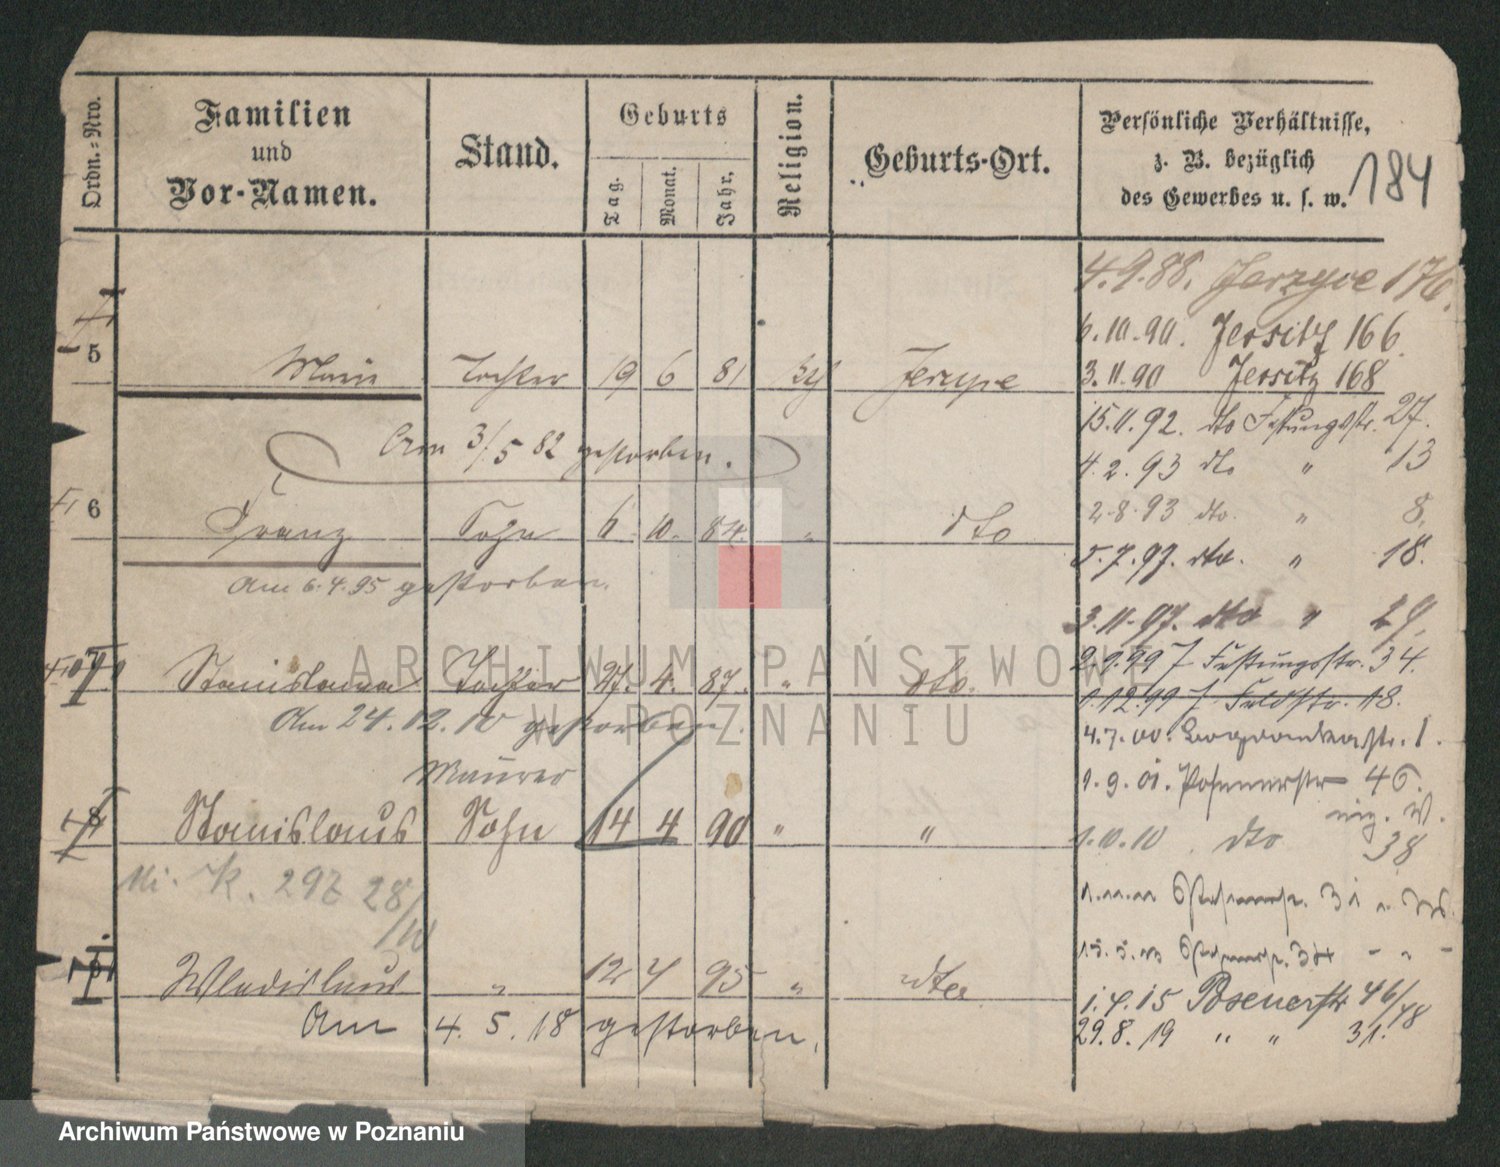 Ordn.-Nro.
Familien
und
Vor-Namen.
Stand.
Geburts
Tag.
Monat.
Jahr.
Religion.
Geburts-Ort.
Persönliche Verhältnisse,
z. B. bezüglich
des Gewerbes u. s. w.
184
4.9.88. Jerzyce 176.
6.10.90. Jersitz 166.
5 Marie Tochter 19 6 81 Jerzyce
3.11.90 Jersitz 168
15.11.92. dto Festungsstr. 27.
Am 3/5 82 gestorben.
4.2.93 dto " 13
6 Franz Sohn 6. 10. 84. " dto
2.8.93 dto. " 8.
5.7.97. dto. " 18.
Am 6.4.95 gestorben.
3.11.97. dto " 29.
7 Stanislawa Tochter 27. 4. 87. " dto.
2.9.99 Festungsstr. 34.
1.12.99 Feldstr. 18.
Am 24.12.10 gestorben.
4.7.00. str. 1.
Maurer
1.9.01. Posenerstr 46.
8 Stanislaus Sohn 14 4 90 " "
1.10.10 dto 38
K. 297 28/10
9 Wladislaus " 12 4 95 " dto
15.5. 34 - " -
1.4.15 Posenerstr 46/48
Am 4.5.18 gestorben.
29.8.19 " " 31.
ARCHIWUM PAŃSTWOWE
W POZNANIU
Archiwum Państwowe w Poznaniu